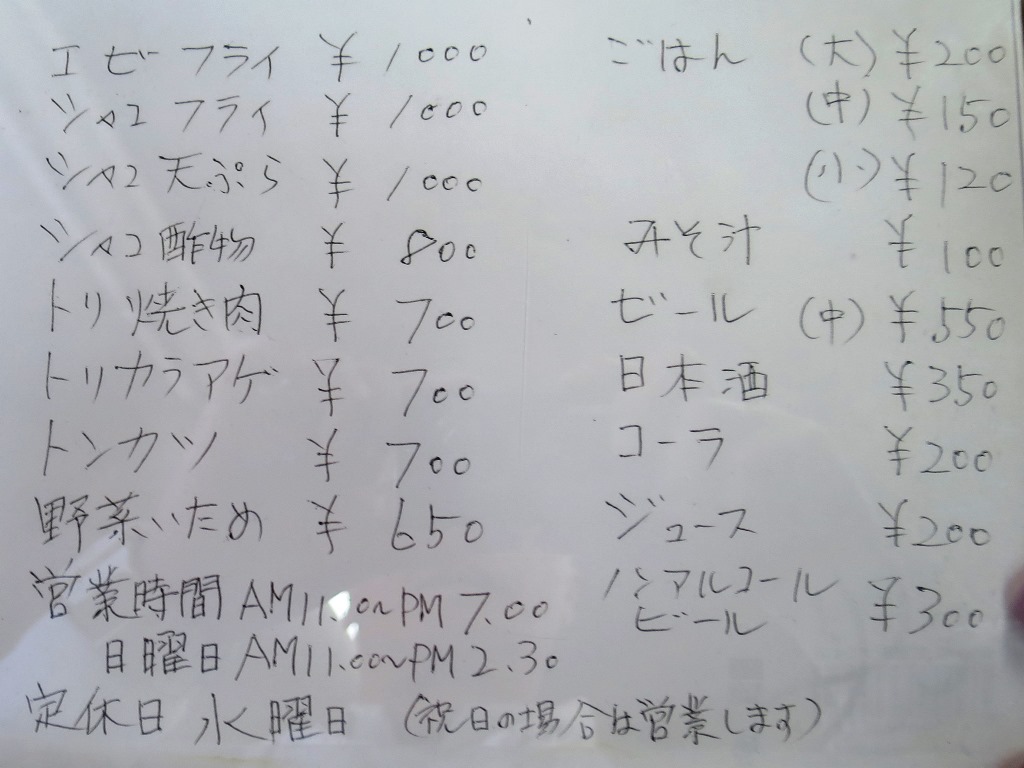 エビフライ ¥1000
シャコフライ ¥1000
シャコ天ぷら ¥1000
シャコ酢物 ¥800
トリ焼き肉 ¥700
トリカラアゲ ¥700
トンカツ ¥700
野菜いため ¥650
ごはん (大) ¥200
(中) ¥150
(小) ¥120
みそ汁 ¥100
ビール (中) ¥550
日本酒 ¥350
コーラ ¥200
ジュース ¥200
ノンアルコール
ビール ¥300
営業時間 AM11.00~PM7.00
日曜日 AM11.00~PM2.30
定休日 水曜日 (祝日の場合は営業します)